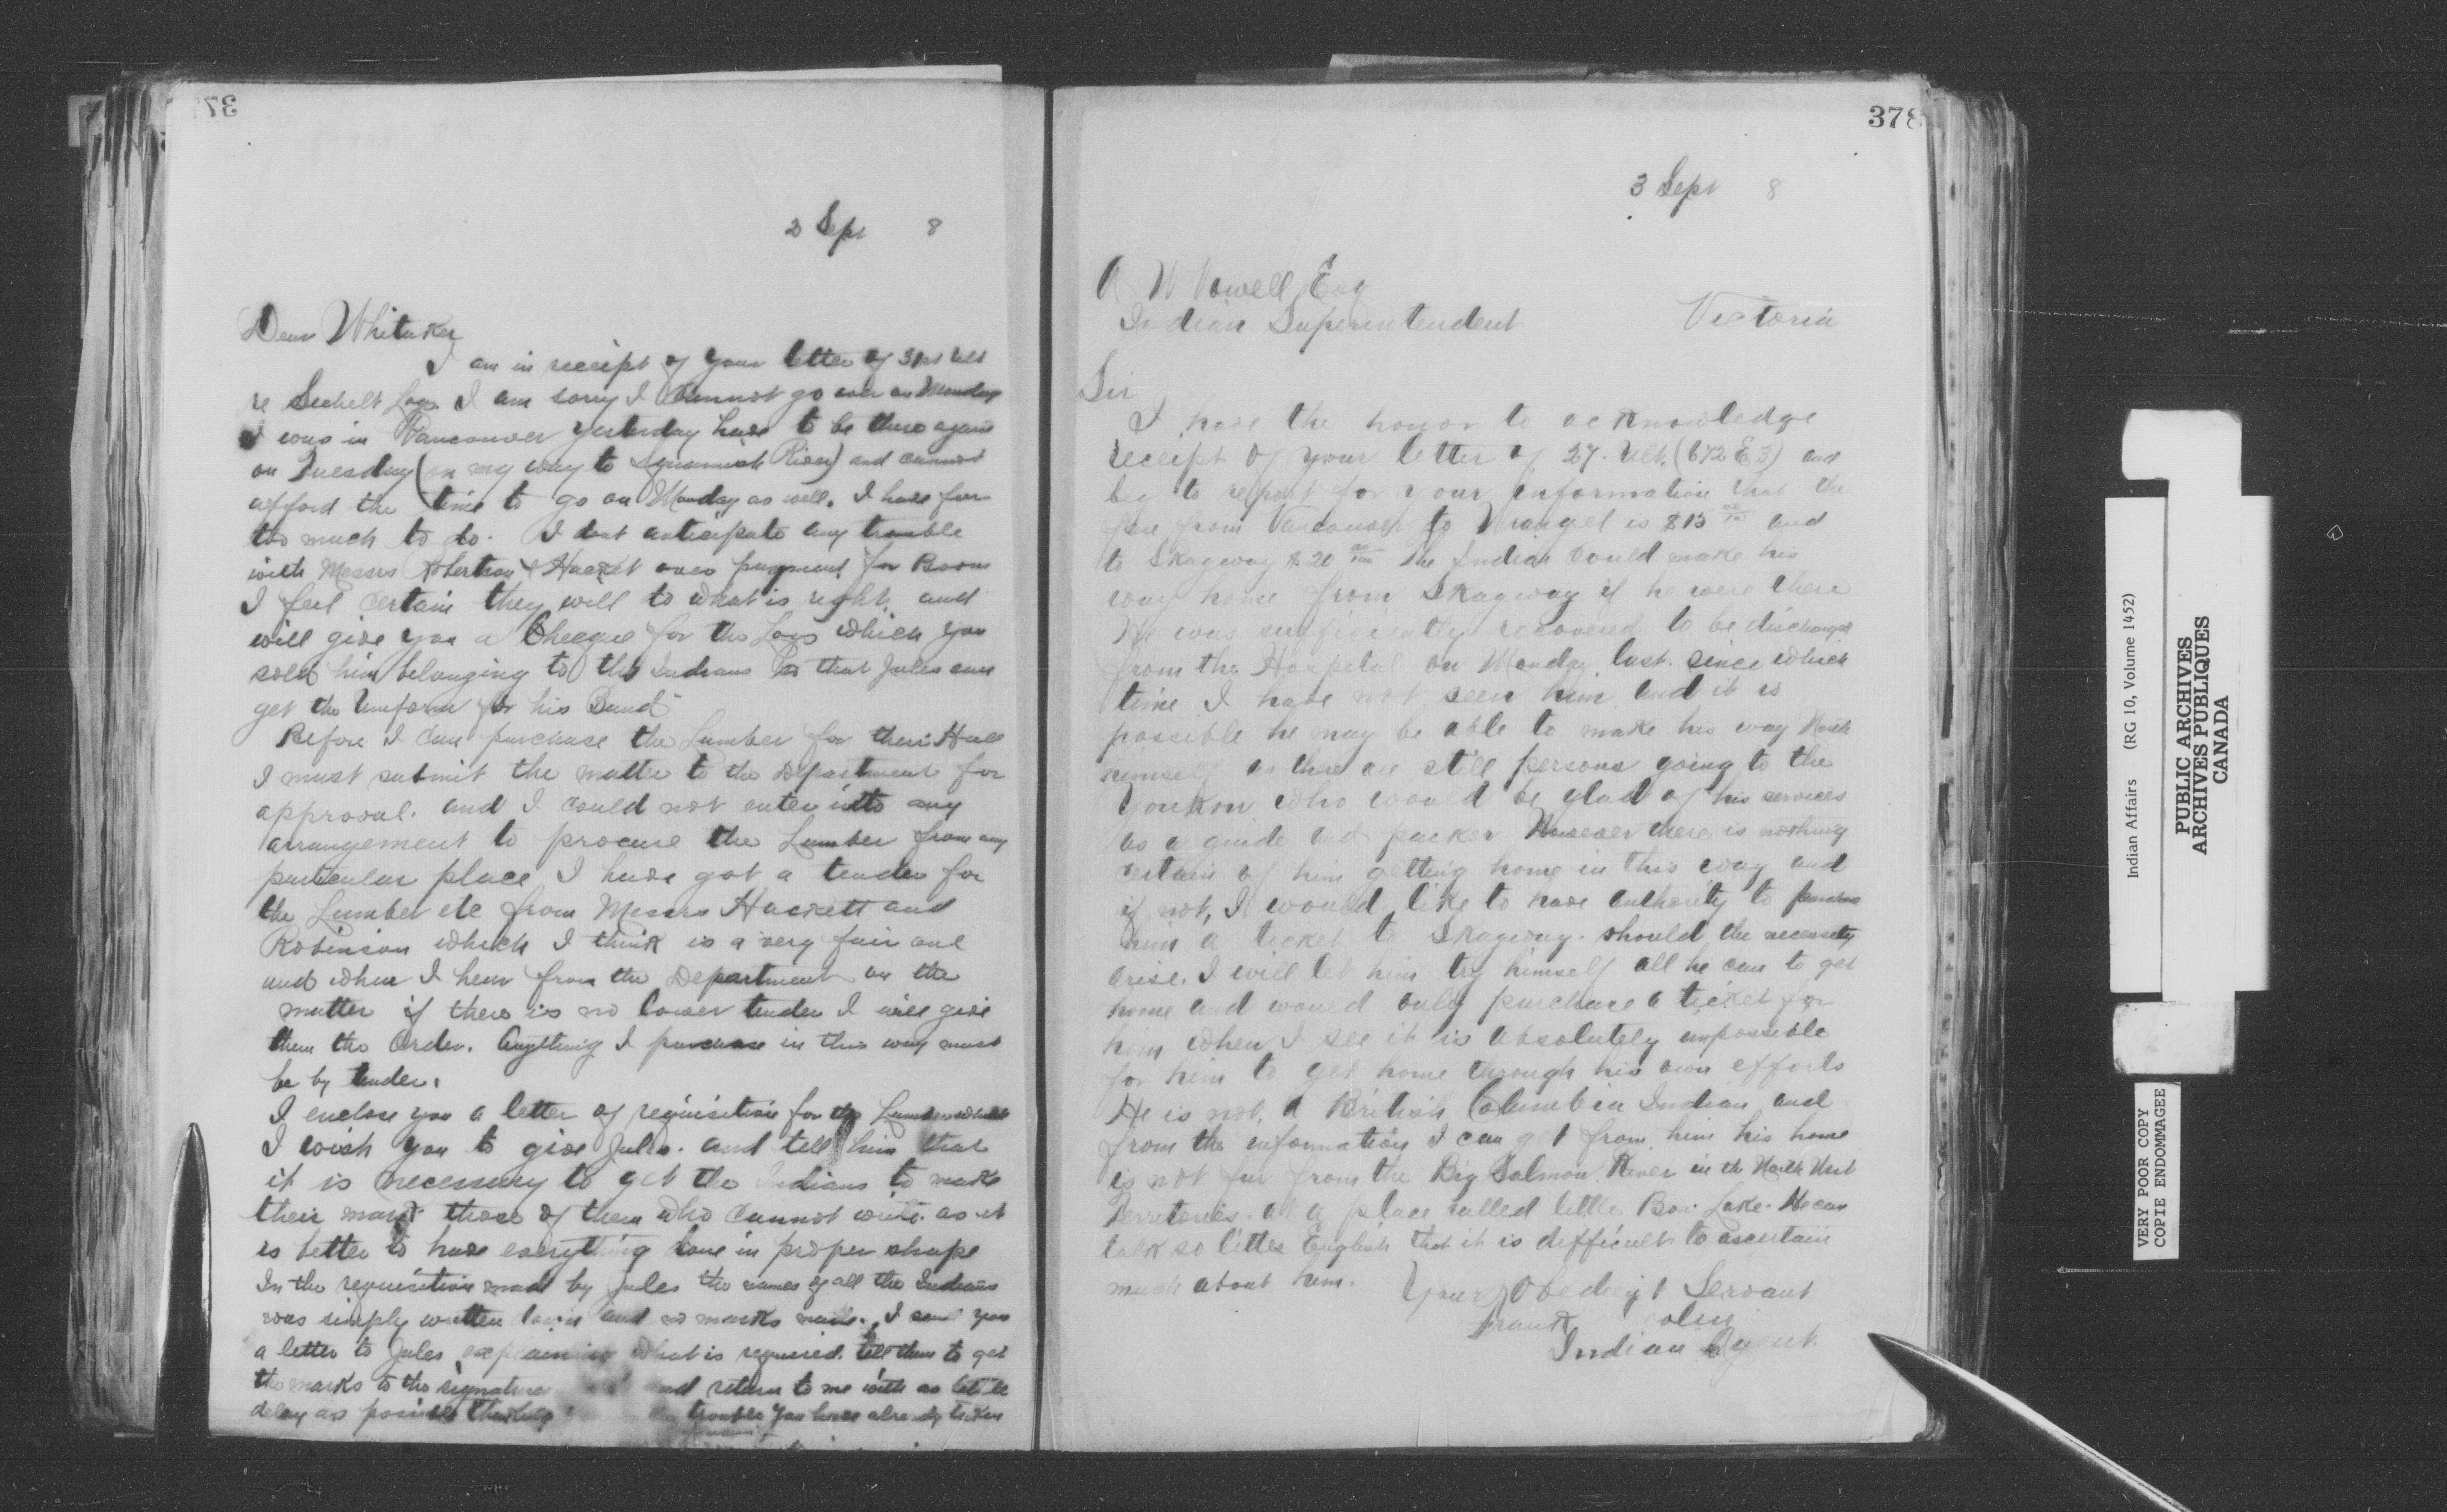 2 Sept 8
Dear Whitaker
I am in receipt of your letter of 31st ult
re Sechelt Logs. I am sorry I cannot go over on Monday
I was in Vancouver yesterday have to be there again
on Tuesday (on my way to Squamish River) and cannot
afford the time to go on Monday as well. I have far
too much to do. I dont anticipate any trouble
with Messrs Robertson & Hacket over payment for Boom
I feel certain they will to what is right and
will give you a Cheque for the Logs which you
sold him belonging to the Indians so that Jules can
get the Uniform for his Band
Before I can purchase the Lumber for their Hall
I must submit the matter to the Department for
approval. and I could not enter into any
arrangement to procure the Lumber from any
particular place I have got a tender for
the Lumber etc from Messrs Hackett and
Robinson which I think is a very fair one
and when I hear from the Department on the
matter if there is no lower tender I will give
them the Order. Anything I purchase in this way must
be by tender.
I enclose you a letter of requisition for the Lumber which
I wish you to give Jules. and tell him that
it is necessary to get the Indians to make
their mark those of them who cannot write. as it
is better to have everything done in proper shape
In the requisition made by Jules the names of all the Indians
was simply written down and no marks made. I send you
a letter to Jules explaining what is required. tell them to get
the marks to the signatures and return to me with as little
delay as possible thanking trouble you have already taken
378
3 Sept 8
A W Vowell Esq
Indian Superintendent Victoria
Sir
I have the honor to acknowledge
receipt of your letter of 27. Ult. (672 E.3) and
beg to report for your information that the
fare from Vancouver to Wrangel is $15 00/100 and
to Skagway $20 00/100 The Indian could make his
way home from Skagway if he were there
He was sufficiently recovered to be discharged
from the Hospital on Monday last. since which
time I have not seen him and it is
possible he may be able to make his way North
himself as there are still persons going to the
Youkon who would be glad of his services
as a guide and packer. However there is nothing
certain of him getting home in this way and
if not, I would like to have authority to purchase
him a ticket to Skagway. should the necessity
arise. I will let him try himself all he can to get
home and would only purchase a ticket for
him when I see it is absolutely impossible
for him to get home through his own efforts
He is not, a British Columbia Indian and
from the information I can get from him his home
is not far from the Big Salmon River in the North West
Territories. at a place called little Lake. He can
talk so little English that it is difficult to ascertain
much about him.
Your Obedient Servant
Frank
Indian Agent.
Indian Affairs (RG 10, Volume 1452)
PUBLIC ARCHIVES
ARCHIVES PUBLIQUES
CANADA
VERY POOR COPY
COPIE ENDOMMAGEE